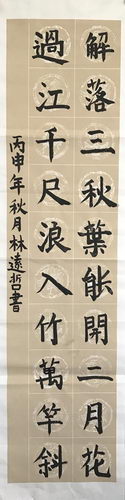 解落三秋葉能開二月花
過江千尺浪入竹萬竿斜
丙申年秋月林遠哲書